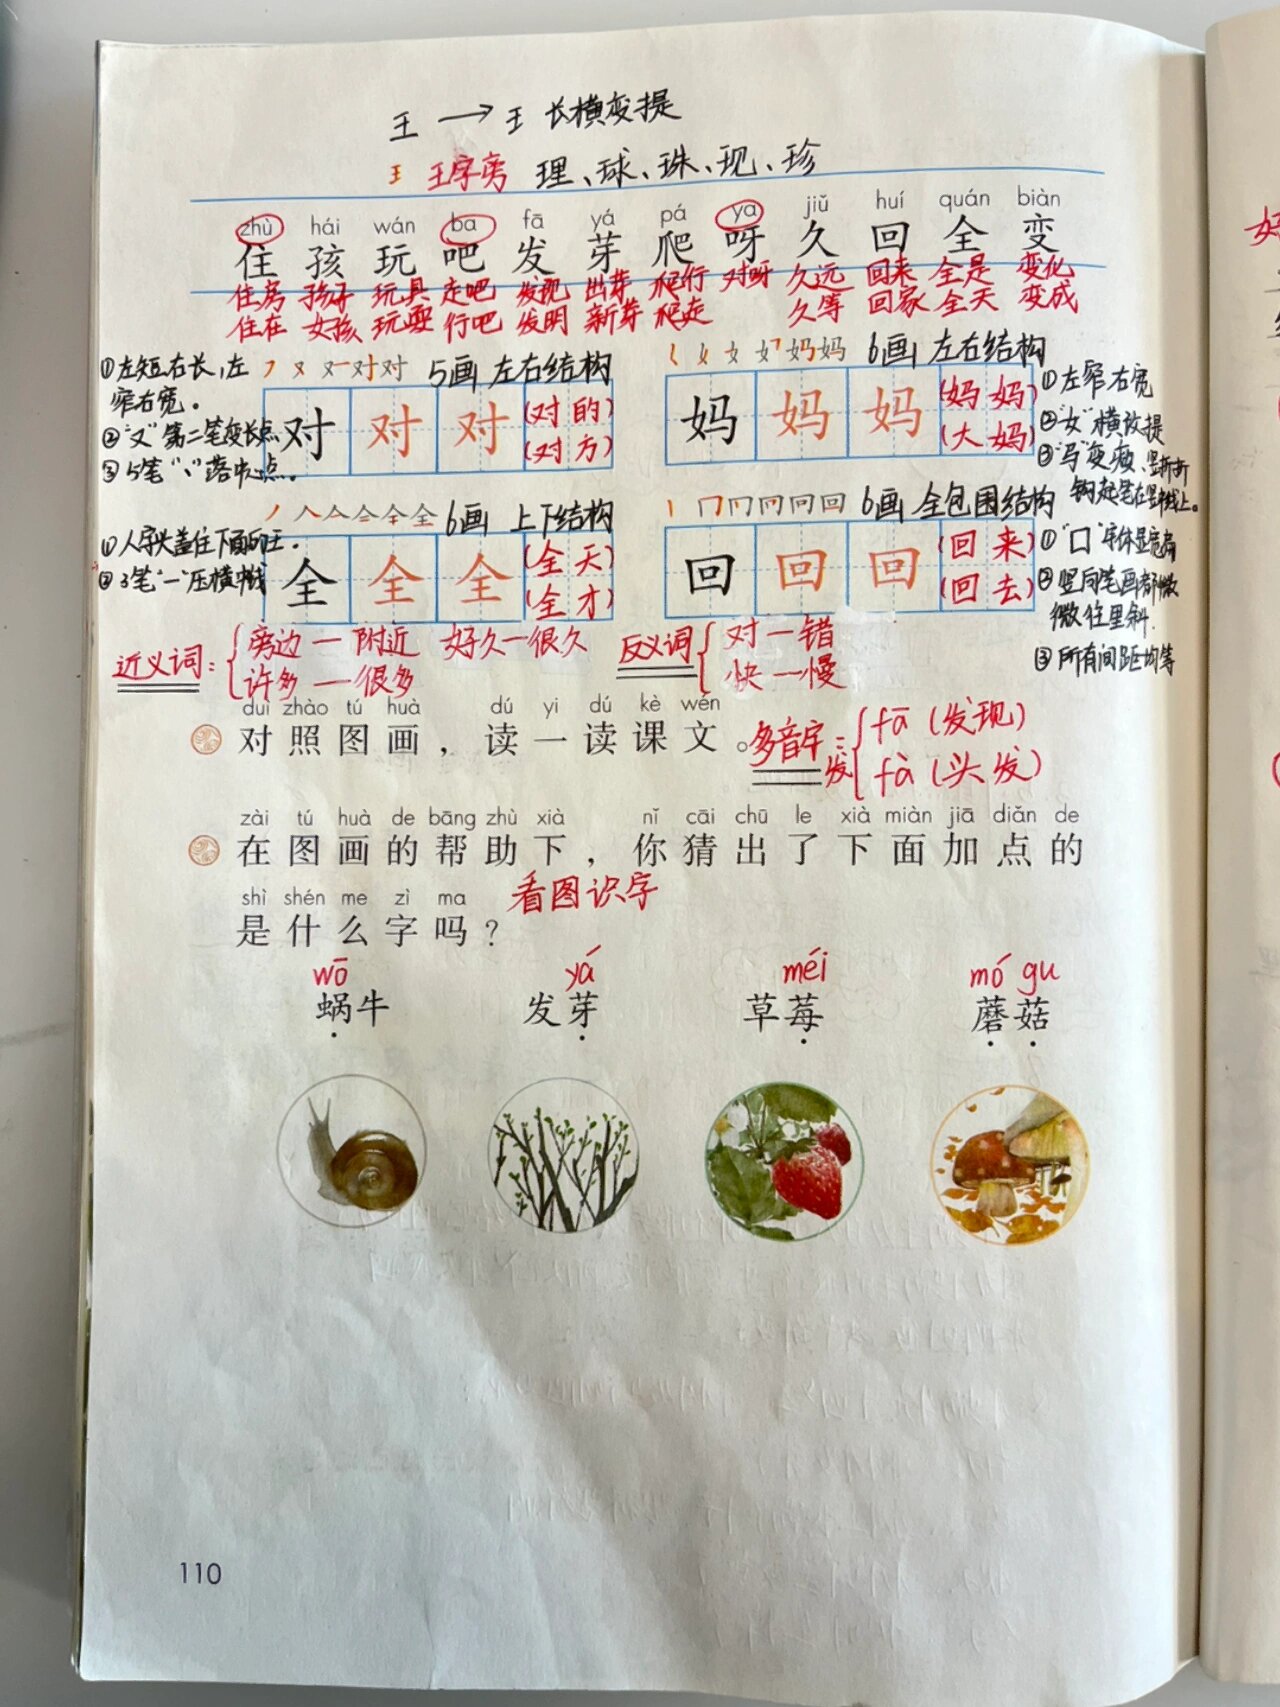 王 → 王 长横变提
王 王字旁 理、球、珠、现、珍
zhù hái wán ba fā yá pá ya jiǔ huí quán biàn
住 孩 玩 吧 发 芽 爬 呀 久 回 全 变
住房 孩子 玩具 走吧 发现 出芽 爬行 对呀 久远 回来 全是 变化
住在 女孩 玩耍 行吧 发明 新芽 爬走 久等 回家 全天 变成
①左短右长,左窄右宽。
②“又”第二笔变长点
③5笔“丶”落中心点。
对对 5画 左右结构
对 对 对 (对的)
(对方)
妈妈 6画 左右结构
妈 妈 妈 (妈妈)
(大妈)
①左窄右宽
②“女”横改提
③“马”变瘦、竖折折钩起笔在竖中线上。
①人字头盖住下面的王.
②3笔“一”压横中线
全全 6画 上下结构
全 全 全 (全天)
(全才)
回回 6画 全包围结构
回 回 回 (回来)
(回去)
①“口”字体显宽高
②竖向笔画都微微往里斜.
③所有间距均等
近义词:{旁边一附近 好久一很久
许多一很多
反义词{对一错
快一慢
duì zhào tú huà dú yi dú kè wén
对照图画,读一读课文。
多音字:发{fā(发现)
fà(头发)
zài tú huà de bāng zhù xià nǐ cāi chū le xià miàn jiā diǎn de
在图画的帮助下,你猜出了下面加点的
shì shén me zì ma
是什么字吗?
看图识字
wō yá méi mó gu
蜗牛 发芽 草莓 蘑菇
110